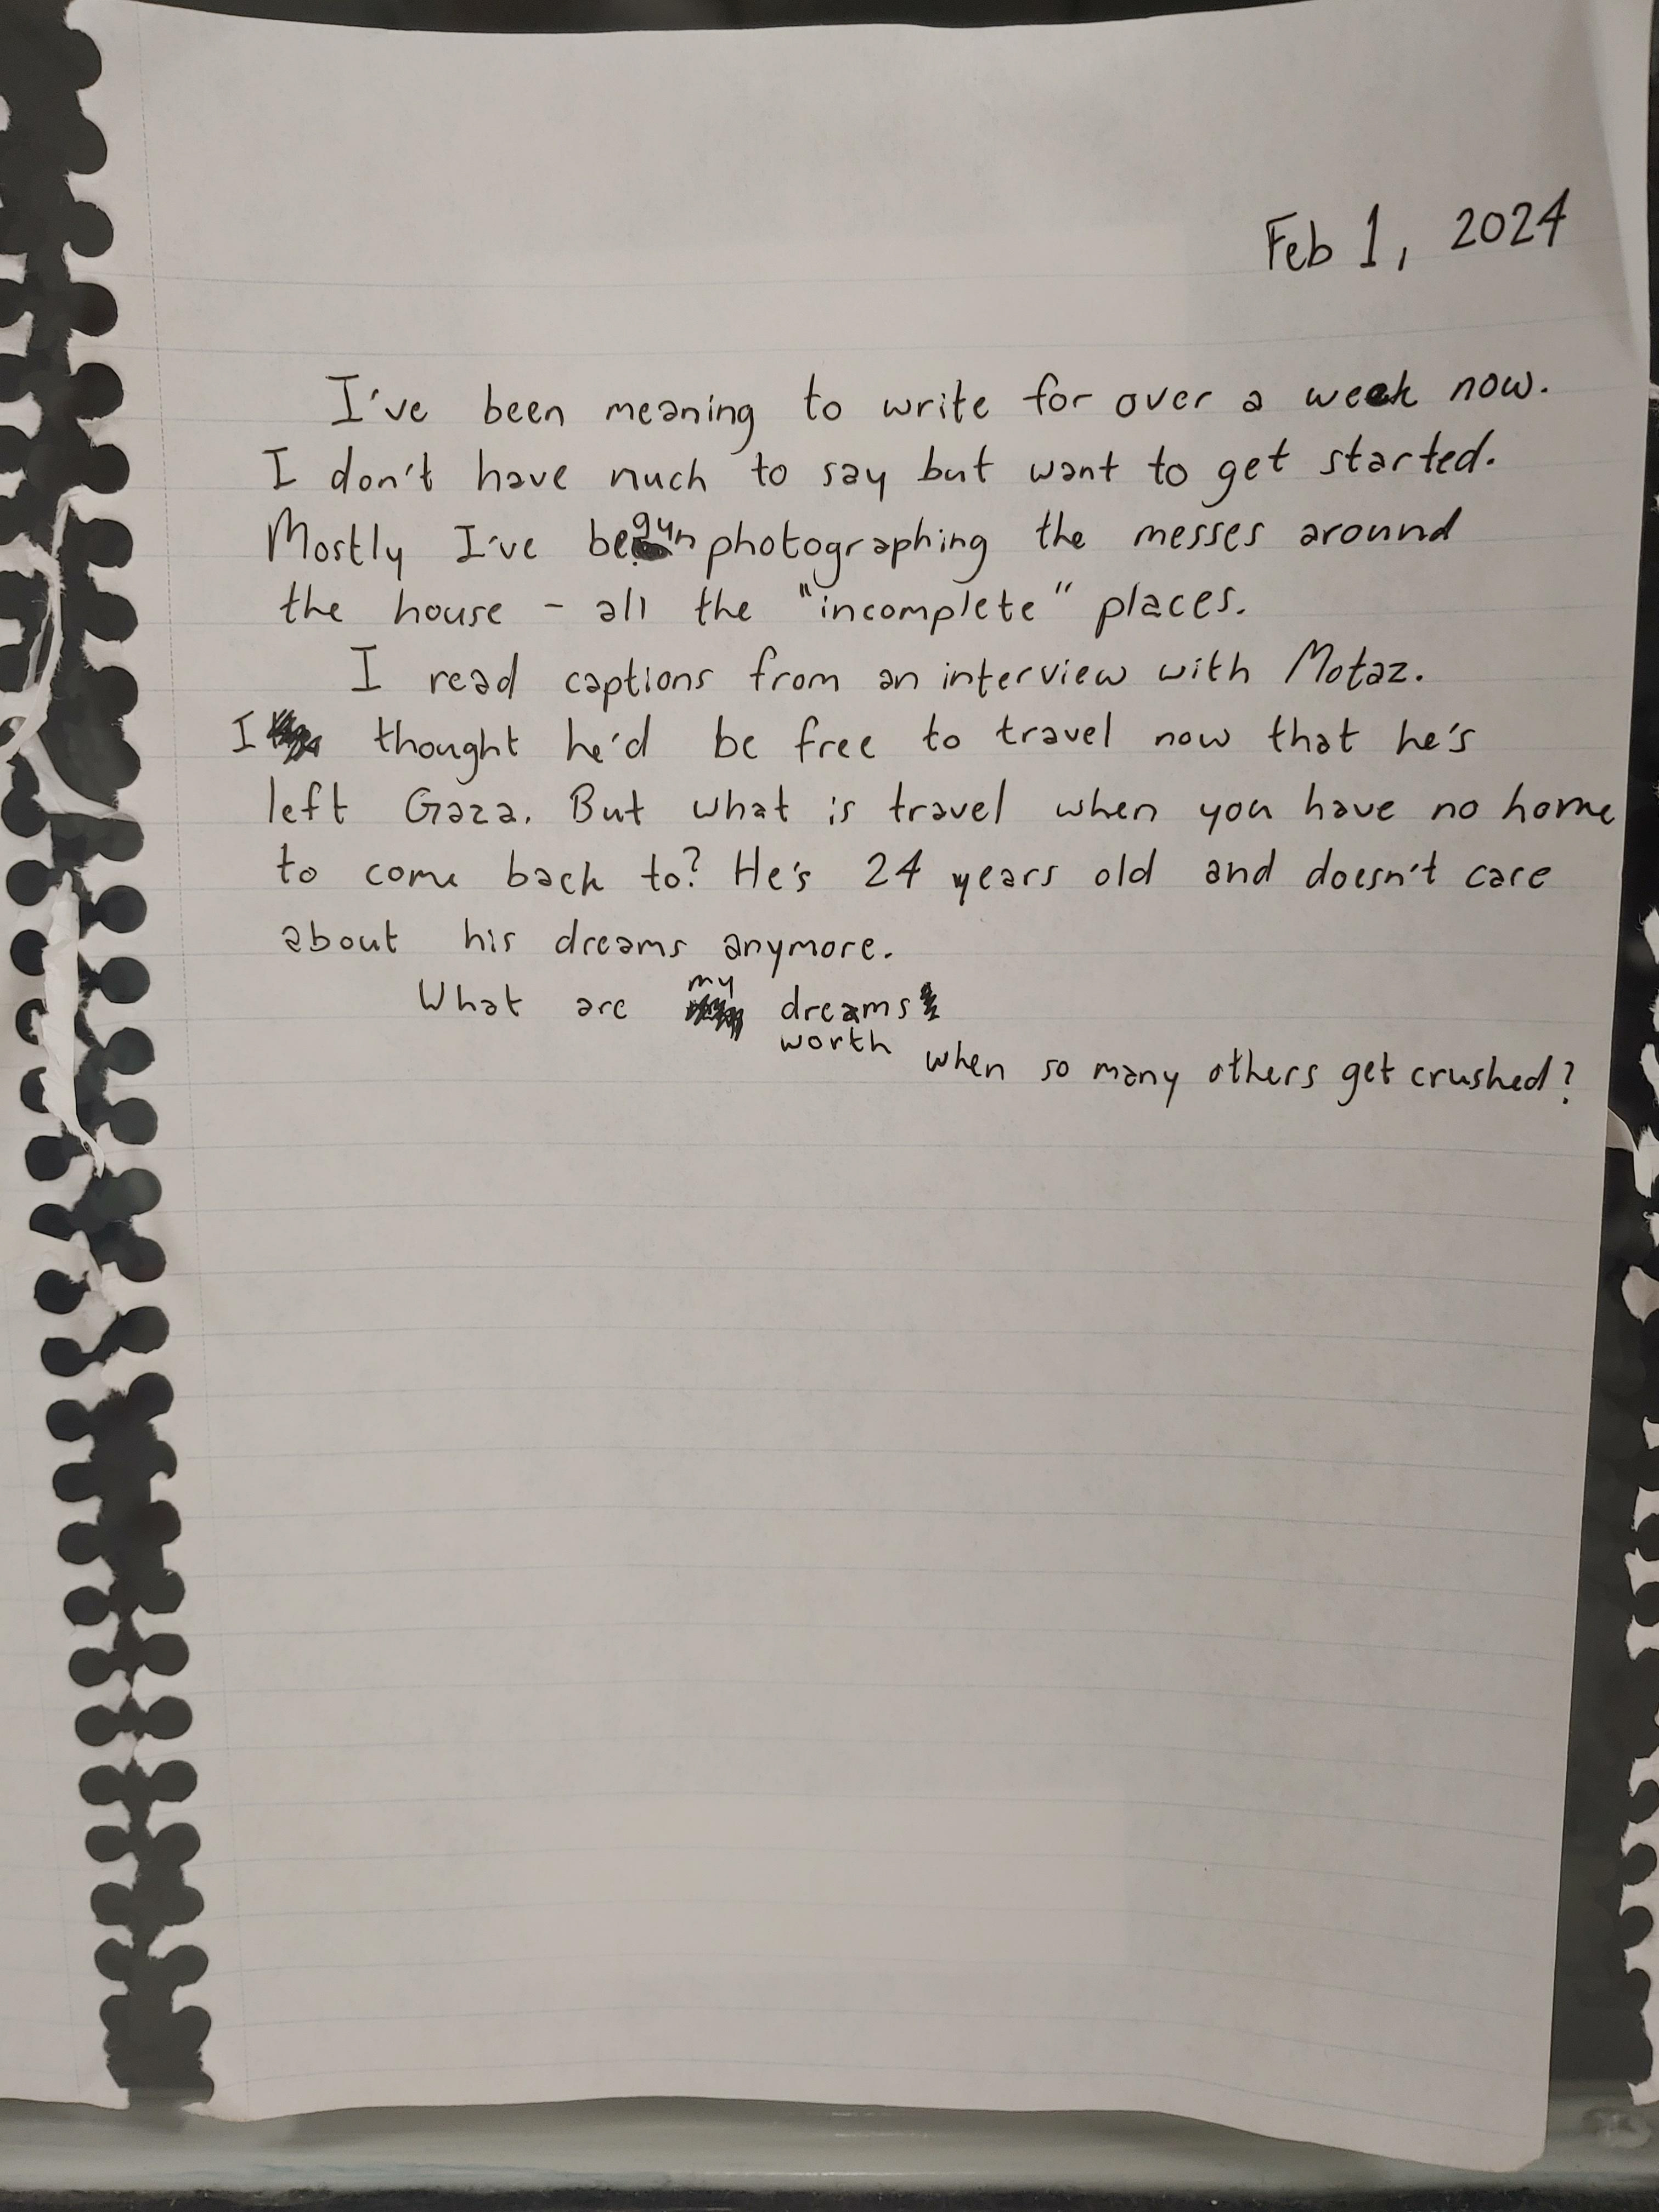 Feb 1, 2024
I've been meaning to write for over a week now.
I don't have much to say but want to get started.
Mostly I've begun photographing the messes around
the house - all the "incomplete" places.
I read captions from an interview with Motaz.
I thought he'd be free to travel now that he's
left Gaza. But what is travel when you have no home
to come back to? He's 24 years old and doesn't care
about his dreams anymore.
What are my dreams
worth when so many others get crushed?